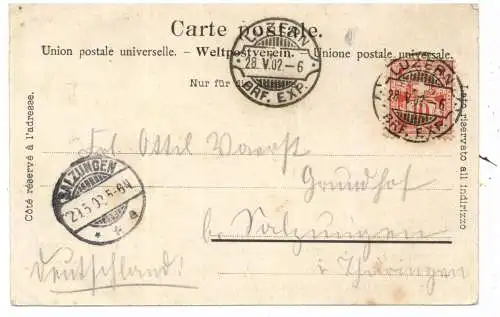 Carte postale.
Union postale universelle. – Weltpostverein. – Unione postale universale.
Nur für die
LUZERN
28.V.02.–6
BRF. EXP.
LUZERN
28.V.02.–6
BRF. EXP.
10
Côté réservé à l'adresse.
Lato riservato all'indirizzo
Grundhof
b. Salzungen
i Thüringen
Deutschland!
SALZUNGEN